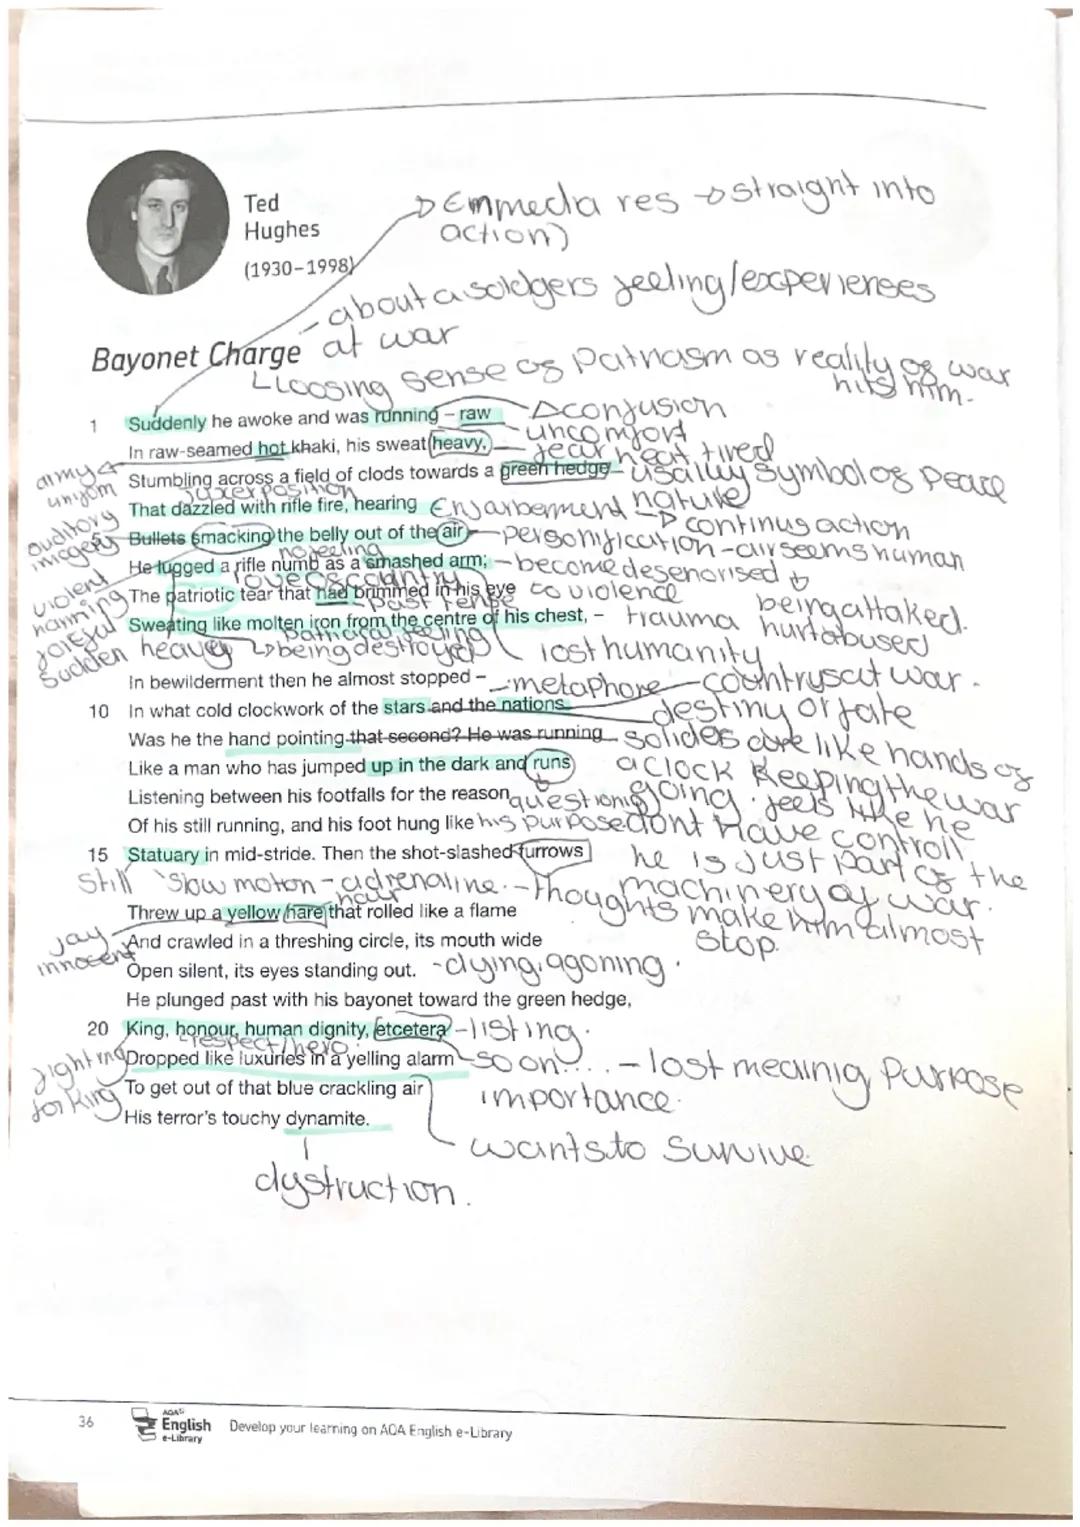 Ted
Hughes
(1930–1998)
Emmedia res → straight into
action)
- about a soldgers feeling/experienses
at war
Bayonet Charge
Loosing sense of Patriasm as reality of war
hits him.
1 Suddenly he awoke and was running – raw
confusion
uncomfort
In raw-seamed hot khaki, his sweat heavy,
fear heat tired
army
uniform
Stumbling across a field of clods towards a green hedge
usally symbol of peace
nature
juxerposition
That dazzled with rifle fire, hearing
Enjarbement
→ continus action
auditory
imagery
5 Bullets smacking the belly out of the air –
personification - air seems human
no feeling
He lugged a rifle numb as a smashed arm;
- become desenorised
to violence
love of country
violent
harming
forceful
sudden
The patriotic tear that had brimmed in his eye
past tense
being attaked.
hurt abused
Sweating like molten iron from the centre of his chest, –
trauma
lost humanity
heavey
being destroyed
In bewilderment then he almost stopped –
metaphore
countrys at war.
10 In what cold clockwork of the stars and the nations
destiny or fate
Was he the hand pointing that second? He was running
soliders are like hands of
Like a man who has jumped up in the dark and runs
a clock keeping the war
going. feels like he
Listening between his footfalls for the reason
questioning
his purpose
dont have controll
Of his still running, and his foot hung like
15 Statuary in mid-stride. Then the shot-slashed furrows
he is just part of the
machinery of war.
Still
Slow moton - adrenaline.
- thoughts make him almost
stop.
Threw up a yellow hare that rolled like a flame
innocent
And crawled in a threshing circle, its mouth wide
Open silent, its eyes standing out.
- dying, agoning.
He plunged past with his bayonet toward the green hedge,
20 King, honour, human dignity, etcetera
- listing.
respect/hero.
fighting
for King
Dropped like luxuries in a yelling alarm
so on.... - lost meanig Purpose
importance.
To get out of that blue crackling air
His terror's touchy dynamite.
wants to survive
dystruction.
36
AQA
English
e-Library
Develop your learning on AQA English e-Library